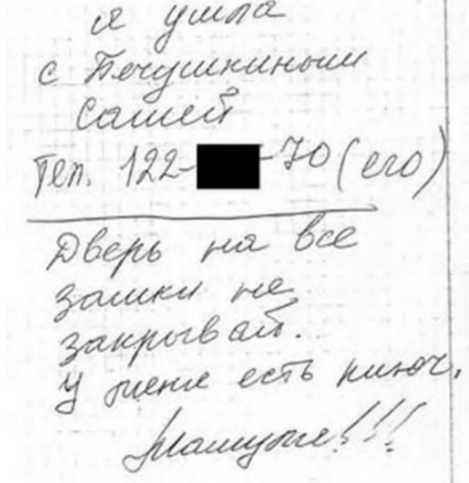 я ушла
с Печушкиным
Сашей
Тел. 122- -70 (его)
Дверь на все
замки не
закрывай.
У меня есть ключ.
Мамуля!!!